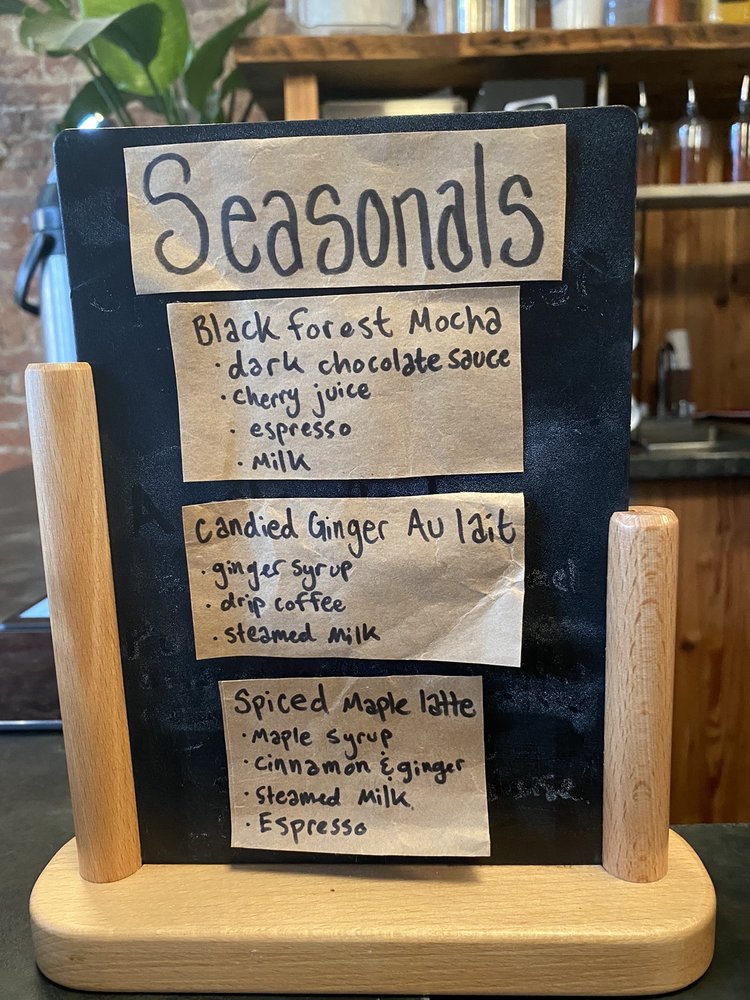 Seasonals
Black Forest Mocha
• dark chocolate sauce
• cherry juice
• espresso
• Milk
Candied Ginger Au lait
• ginger syrup
• drip coffee
• steamed Milk
Spiced Maple latte
• Maple syrup
• Cinnamon & ginger
• Steamed Milk
• Espresso